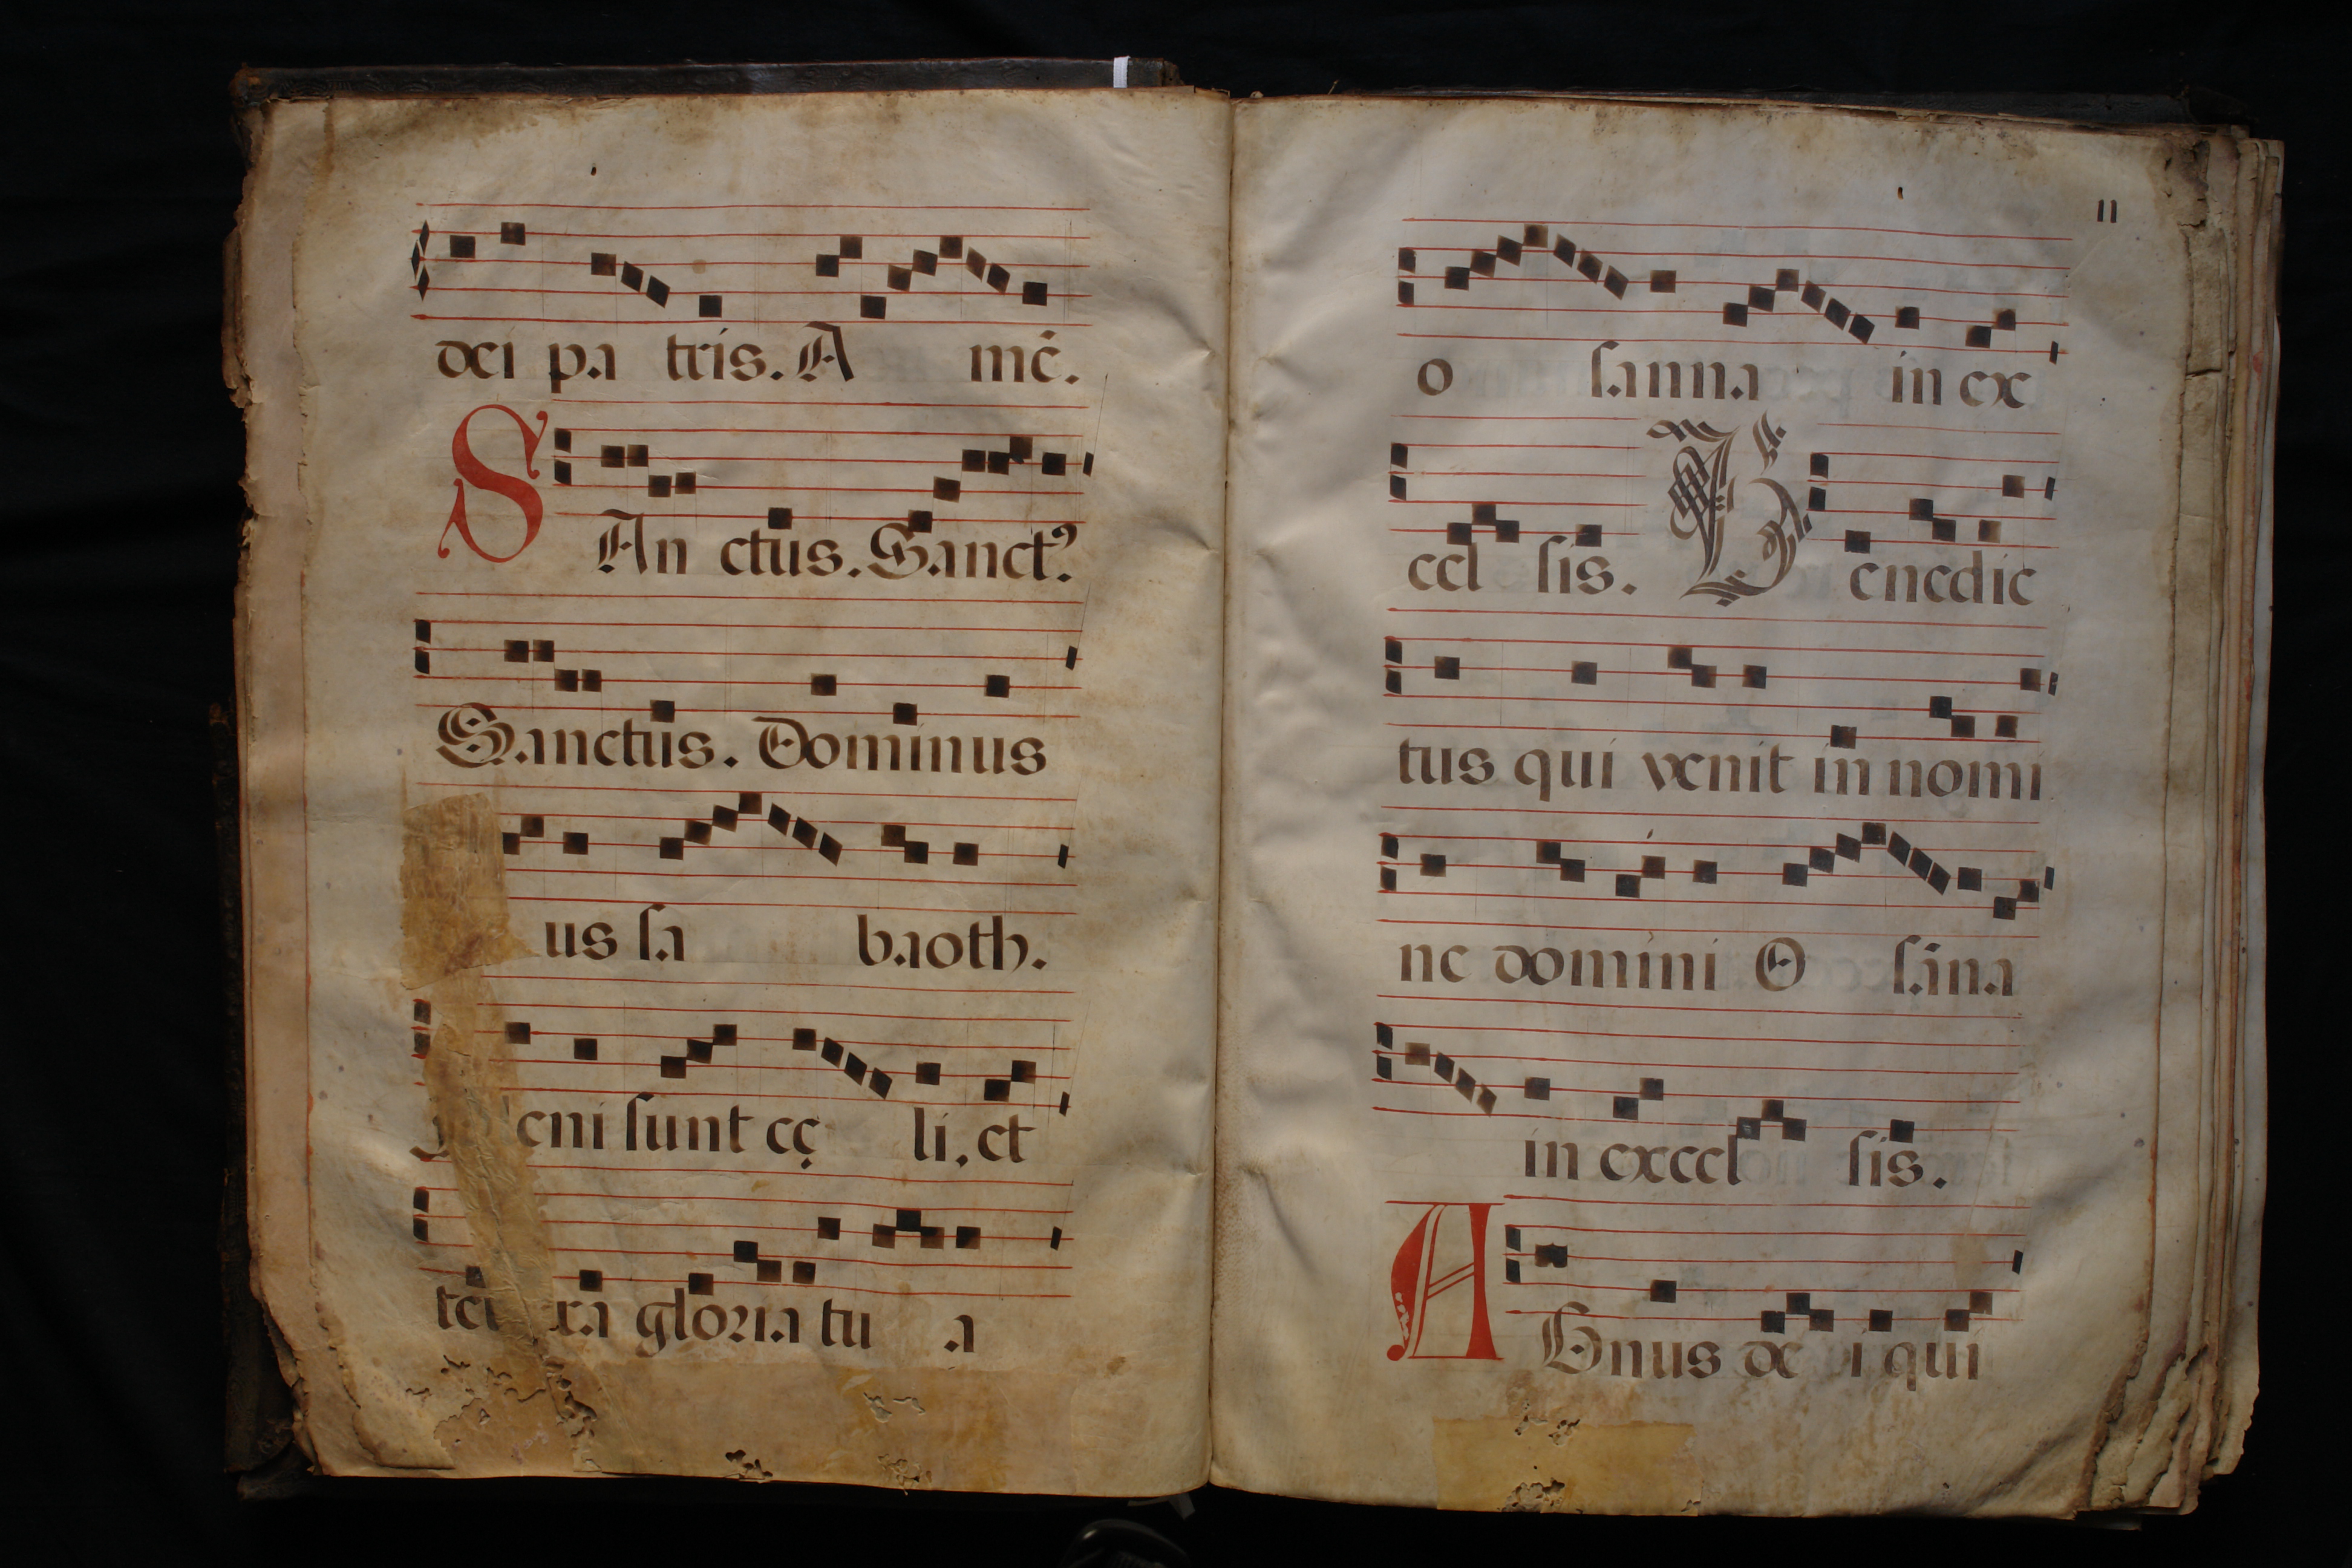 dei pa tris. A mē.
S An ctus. Sanctꝰ
Sanctus. Dominus
us ſa baoth.
eni ſunt cę li, et
ra gloria tu a
11
o ſanna in ex
cel ſis. B enedic
tus qui venit in nomi
ne domini O ſāna
in excel ſis.
A Gnus de i qui